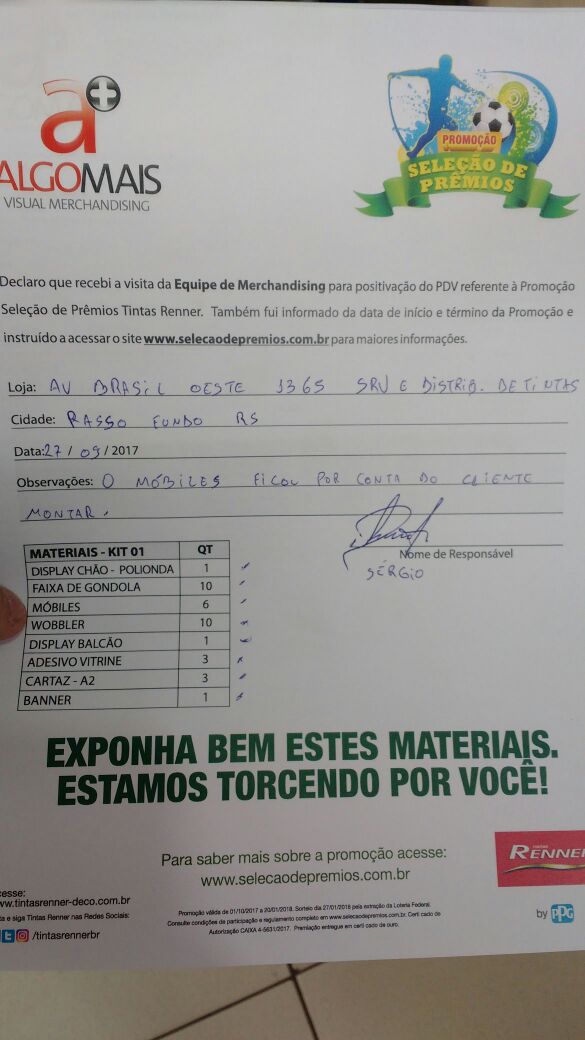 a+
ALGOMAIS
VISUAL MERCHANDISING
PROMOÇÃO
SELEÇÃO DE
PRÊMIOS
Declaro que recebi a visita da Equipe de Merchandising para positivação do PDV referente à Promoção
Seleção de Prêmios Tintas Renner. Também fui informado da data de início e término da Promoção e
instruído a acessar o site www.selecaodepremios.com.br para maiores informações.
Loja: AV BRASIL OESTE 1365 SRV E DISTRIB. DE TINTAS
Cidade: PASSO FUNDO RS
Data: 27 / 09 / 2017
Observações: O MÓBILES FICOU POR CONTA DO CLIENTE
MONTAR.
Nome de Responsável
SÉRGIO
MATERIAIS - KIT 01 QT
DISPLAY CHÃO - POLIONDA 1
FAIXA DE GONDOLA 10
MÓBILES 6
WOBBLER 10
DISPLAY BALCÃO 1
ADESIVO VITRINE 3
CARTAZ - A2 3
BANNER 1
EXPONHA BEM ESTES MATERIAIS.
ESTAMOS TORCENDO POR VOCÊ!
Para saber mais sobre a promoção acesse:
www.selecaodepremios.com.br
tintas
RENNER
cesse:
ww.tintasrenner-deco.com.br
ta e siga Tintas Renner nas Redes Sociais:
/tintasrennerbr
Promoção válida de 01/10/2017 a 20/01/2018. Sorteio dia 27/01/2018 pela extração da Loteria Federal.
Consulte condições de participação e regulamento completo em www.selecaodepremios.com.br. Certi cado de
Autorização CAIXA 4-5631/2017. Premiação entregue em certi cado de ouro.
by PPG